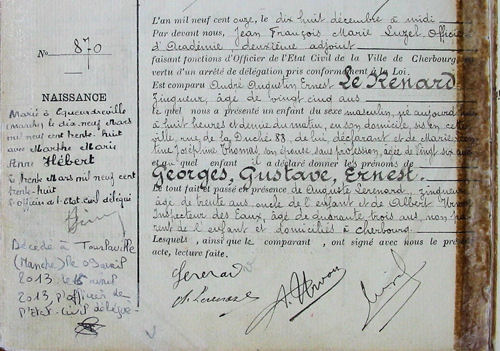 N° 870
NAISSANCE
Marié à Equeurdreville
(manche) le dix neuf Mars
mil neuf cent trente huit
avec Marthe Marie
Anne Hébert
à trente Mars mil neuf cent
trente-huit
l'officier de l'Etat civil délégué
Décédé à Tourlaville
(Manche) le 03 avril
2013, le avril
2013, l'officier de
l'Etat-Civil délégué
L'an mil neuf cent onze, le dix huit décembre à midi
Par devant nous, Jean François Marie Luzel Officier
d'Académie, deuxième adjoint
faisant fonctions d'Officier de l'Etat Civil de la Ville de Cherbourg
vertu d'un arrêté de délégation pris conformément à la Loi.
Est comparu André Augustin Ernest Le Renard
Zingueur, âgé de vingt cinq ans
lequel nous a présenté un enfant du sexe masculin, né aujourd'hui
à huit heures et demie du matin, en son domicile, sis en cette
ville, rue de la Duché 83, de lui, déclarant et de Marie
tine Joséphine Thomas, son épouse, sans profession, âgée de vingt six ans
et auquel enfant il a déclaré donner les prénoms de
Georges, Gustave, Ernest.
Le tout fait et passé en présence de Auguste Lerenard, zingueur
âgé de trente ans, oncle de l'enfant et de Albert Yvon
Inspecteur des Eaux, âgé de quarante trois ans, non pa
rent de l'enfant et domiciliés à Cherbourg
Lesquels, ainsi que le comparant, ont signé avec nous le pré
acte, lecture faite.
Lerenard
A. Yvon
Luzel